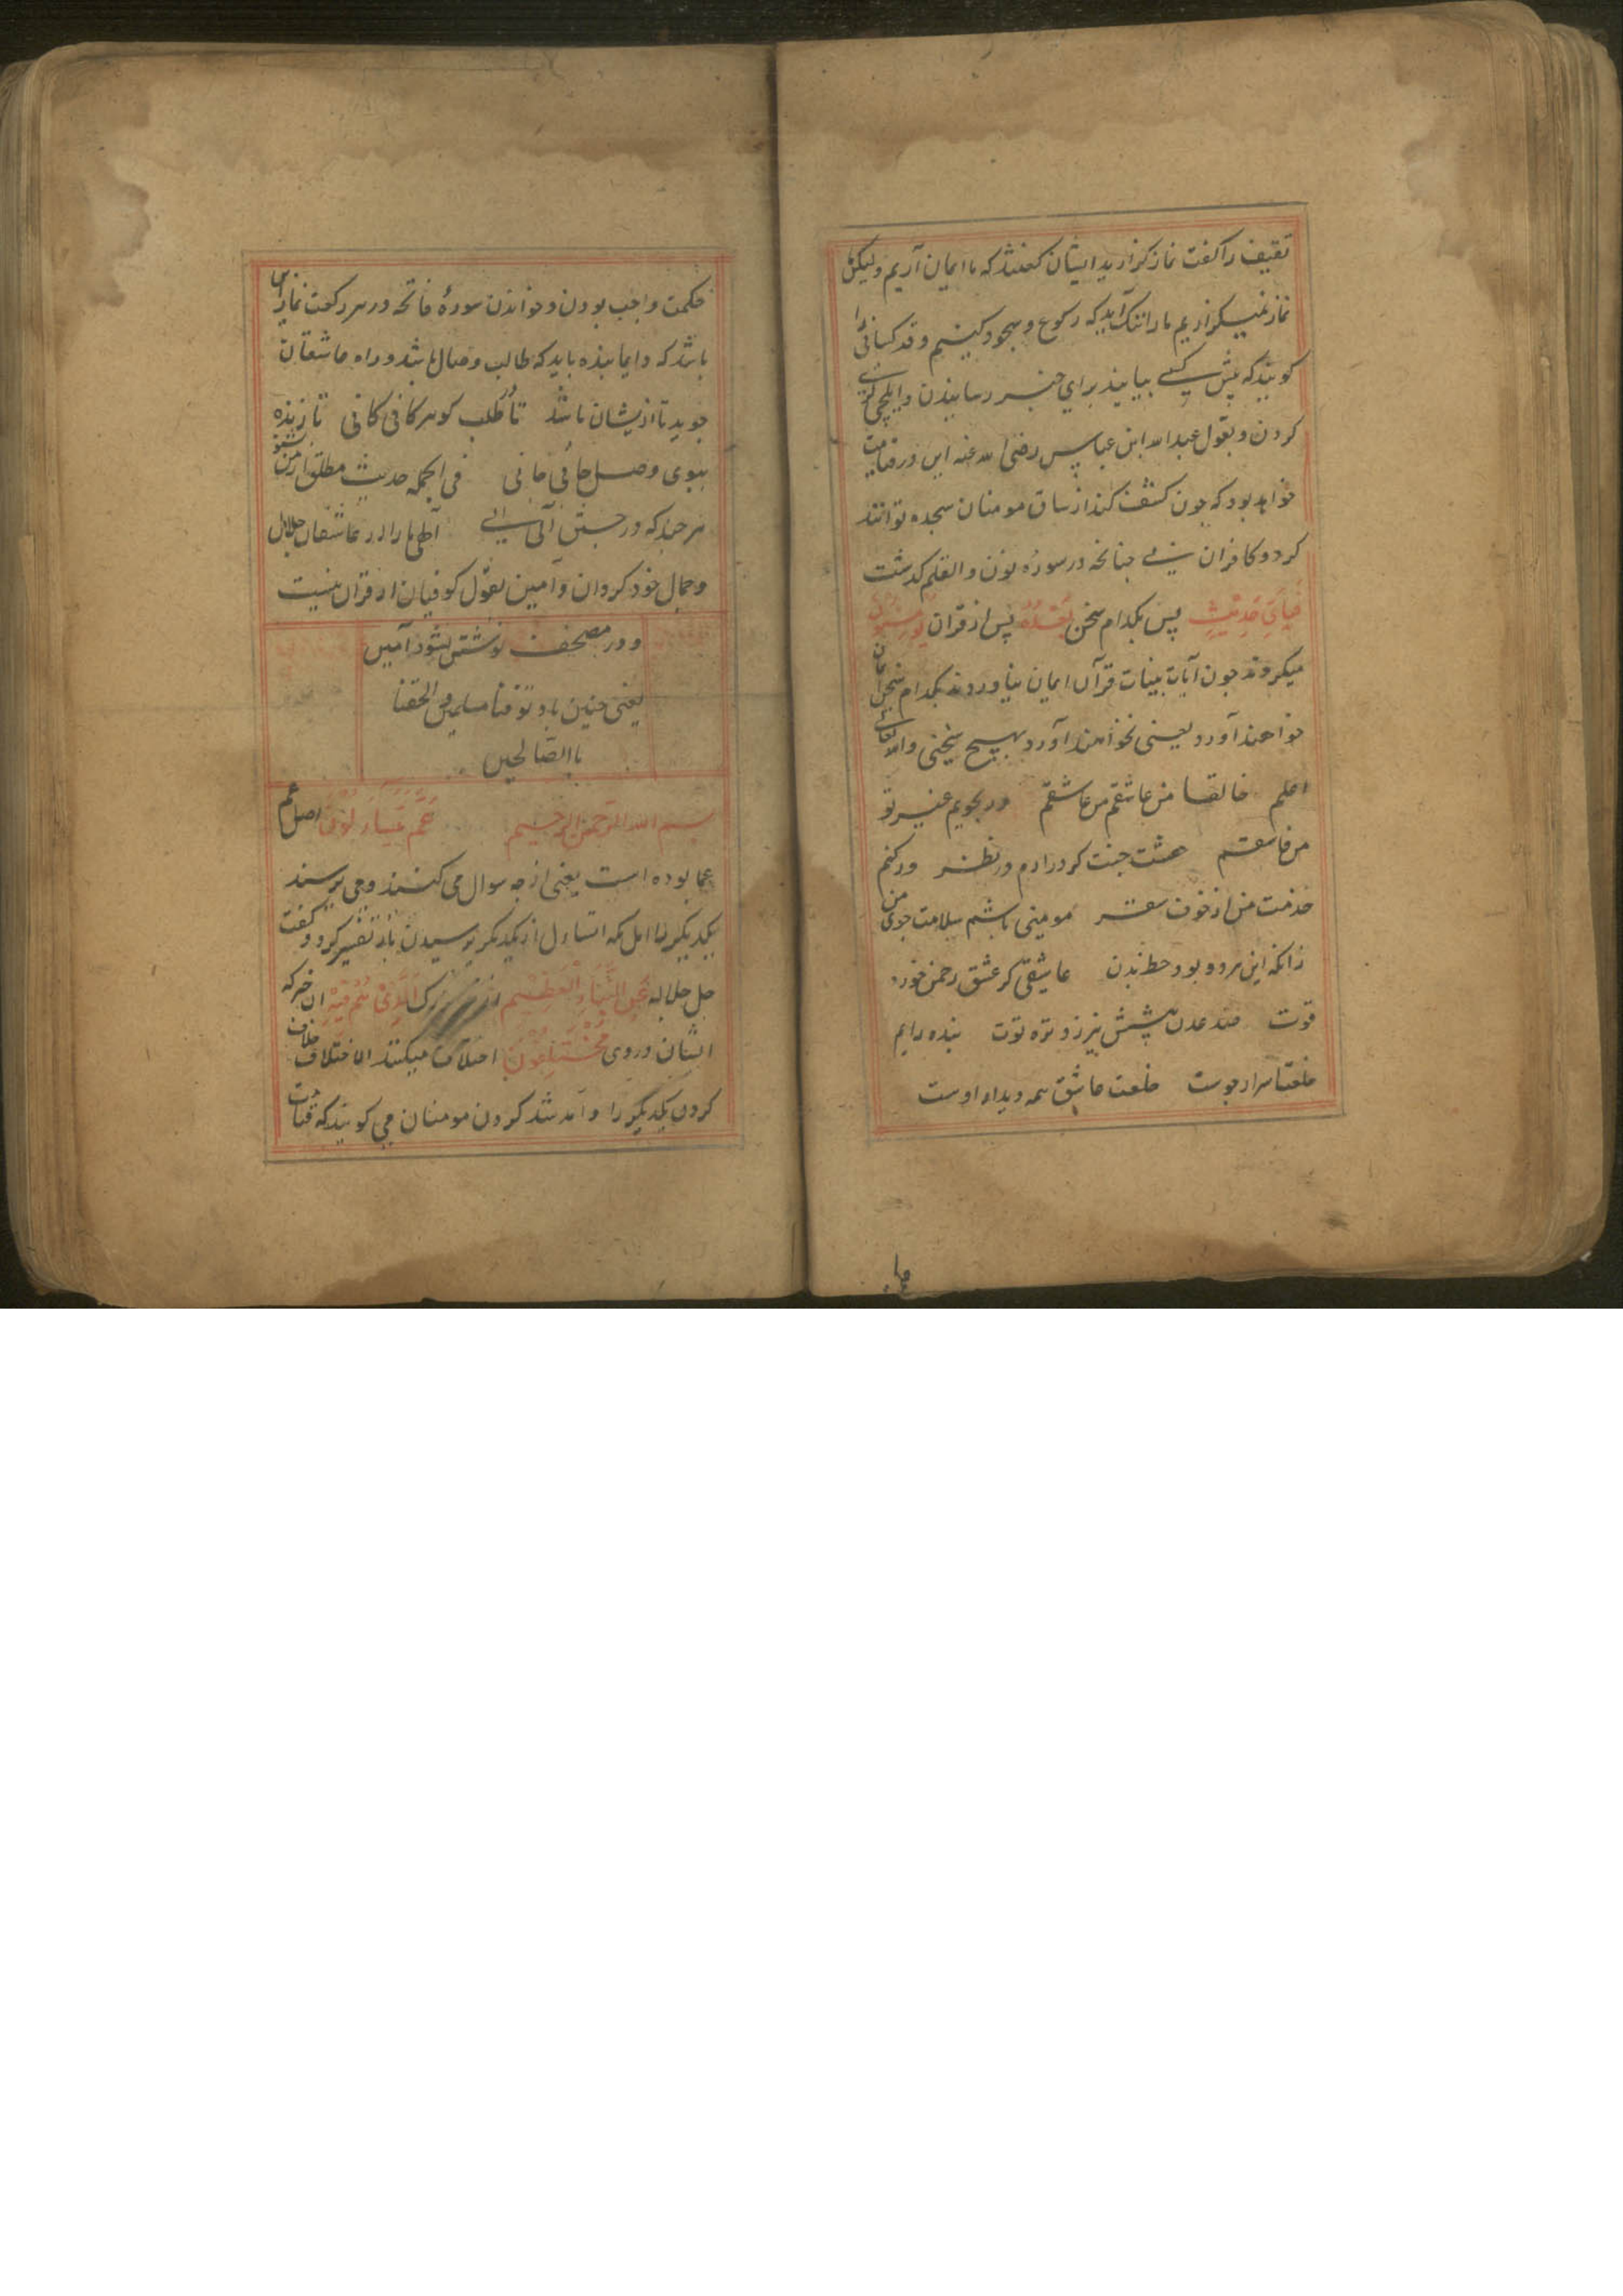 ثقیف را کفت نماز کزارید ایشان کفتند که ما ایمان آریم ولیکن
نماز نمیکزاریم ما را ننک آید که رکوع و سجود کنیم و قد کسانی را
کویند که پیش کسے بیایند برای خبر رسانیدن و ایلچی کری
کردن و بقول عبد الله ابن عباس رضی الله عنه این در قیامت
خواهد بود که چون کشف کند از ساق مومنان سجده توانند
کرد و کافران نے چنانچه در سورهٔ نون والقلم کدشت
فَبِاَیِّ حَدِیْثٍ پس بکدام سخن بَعْدَهٗ پس از قران یُؤْمِنُوْنَ
میکروند چون آیات بینات قرآن ایمان نیاوردند بکدام سخن ایمان
خواهند آورد یعنی نخواهند آورد بهیچ سخنی والله تعالی
اعلم خالقا من عاشقم من عاشقم ور بجویم غیر تو
من فاسقم هشت جنت کر درارم در نظر ور کنم
خدمت من از خوف سقر مومنی باشم سلامت جوی من
زانکه این هر دو بود حط بدن عاشقی کز عشق رحمن خورد
قوت صد عدن پیشش نیرزد تره توت بنده دایم
خلعتا سرار جوست خلعت عاشق همه دیدار اوست
حکمت واجب بودن و خواندن سورهٔ فاتحه در هر رکعت نماز این
باشد که دایما بنده باید که طالب وصال باشد و راه عاشقان
جوید تا از یشان باشد تا در طلب کوهر کانی کانی تا زنده
ببوی وصل جانی جانی فی الجمله حدیث مطلق از من بشنو
هر چیز که در جستن آنی آنی الهی ما را از عاشقان جلال
و جمال خود کردان و آمین بقول کوفیان از قران نیست
و در مصحف نوشتن نشود آمین
یعنی چنین باد توفنا مسلمین والحقنا
باالصالحین
بسم الله الرحمن الرحیم عَمَّ یَتَسَاءَلُوْنَ اصل عم
عما بوده است یعنی از چه سوال می کنند و می پرسند
یکدیکر را اهل مکه التساول از یکدیکر پرسیدن باز تفسیر کرد و کفت
جل جلاله عَنِ النَّبَاِ الْعَظِیْمِ از خبر بزرک اَلَّذِیْ هُمْ فِیْهِ ان خبر که
ایشان در وی مُخْتَلِفُوْنَ اختلاف میکنند الاختلاف خلاف
کردن یکدیکر را و آمد شد کردن مومنان می کویند که قیامت